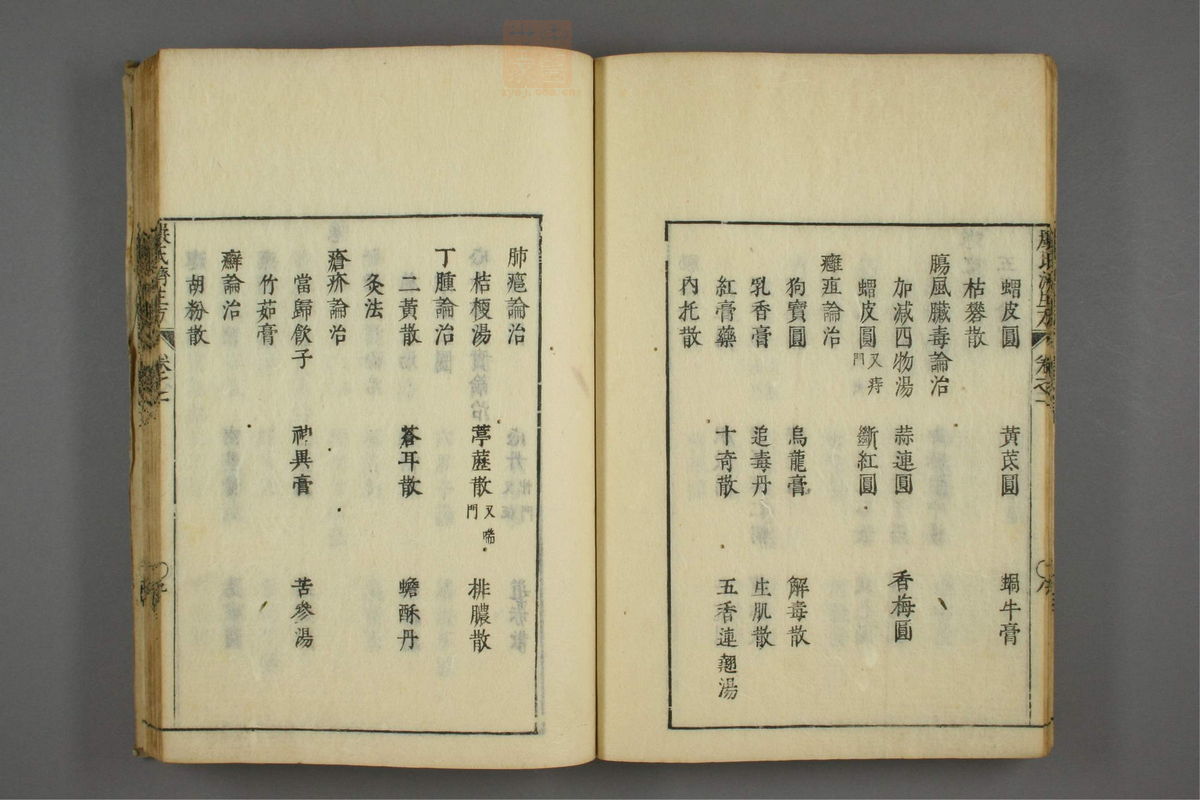 蝟皮圓 黃芪圓 蝸牛膏
枯礬散
腸風臟毒論治
加減四物湯 蒜連圓 香梅圓
蝟皮圓又痔門 斷紅圓
癰疽論治
狗寶圓 烏龍膏 解毒散
乳香膏 追毒丹 生肌散
紅膏藥 十奇散 五香連翹湯
內托散
肺癰論治
桔梗湯 葶藶散又喘門 排膿散
丁腫論治
二黃散 蒼耳散 蟾酥丹
灸法
瘡疥論治
當歸飲子 神異膏 苦參湯
竹茹膏
癬論治
胡粉散